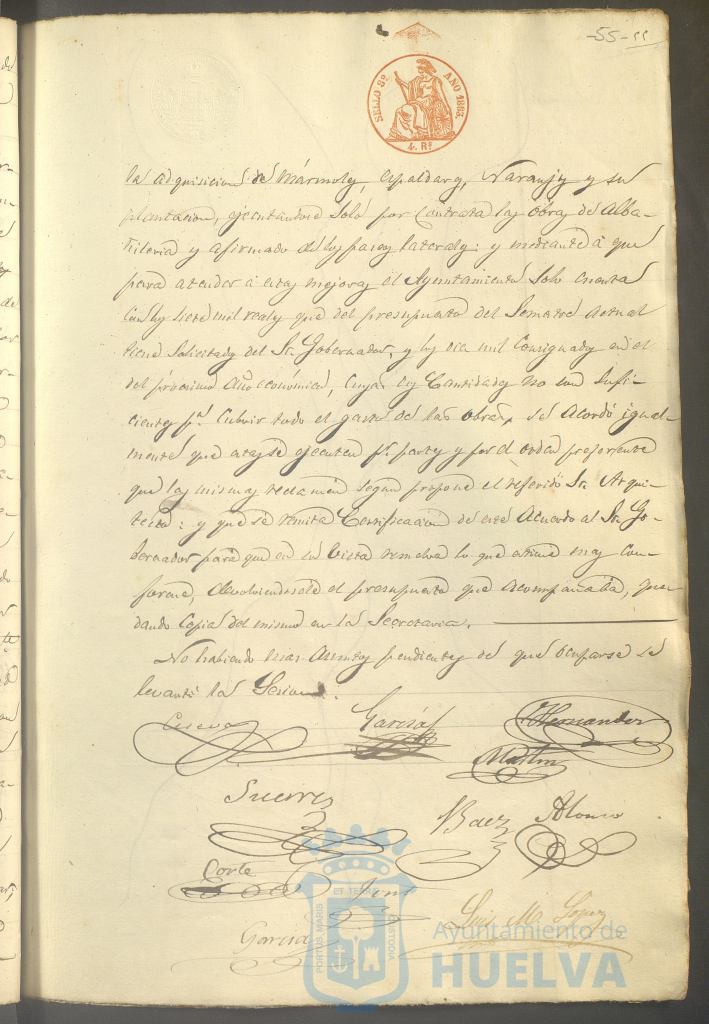 -55-
SELLO 8º AÑO 1863.
4. Rs
la adquisicion de Mármoles, espaldares, Naranjos y su
plantacion, ejecutandose solo por Contrata las obras de Alba-
ñileria y afirmado de los paseos laterales: y mediante á que
para atender á estas mejoras el Ayuntamiento solo cuenta
con los siete mil reales que del presupuesto del Semestre actual
tiene solicitados del Sr. Gobernador, y los diez mil Consignados en el
del prócsimo año económico, cuyas Cantidades no son sufi-
cientes pa. cubrir todo el gasto de las obras, se acordó igual-
mente que estas se ejecuten pr. partes y por el orden preferente
que las mismas reclamen segun propone el referido Sr. Arqui-
tecto: y que se remita Certificacion de este Acuerdo al Sr. Go-
bernador para que en su vista resuelva lo que estime mas con-
forme, devolviendosele el presupuesto que acompañaba, que-
dando copia del mismo en la Secretaria.
No habiendo mas asuntos pendientes de que ocuparse se
levantó la Sesion.
García Hernandez
Martin
Suerro
Baez Alonso
Corte
Garcia Luis M. Lopez
PORTUS MARIS ET TERRE CUSTODIA
Ayuntamiento de
HUELVA